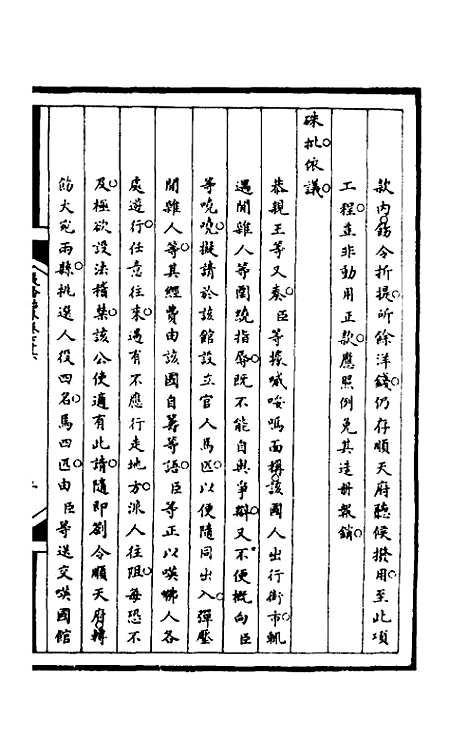 款內飭令折提所餘洋錢仍存順天府聽候撥用至此項
工程並非動用正款應照例免其造册報銷
硃批依議
恭親王等又奏臣等據嘁唩嗎面稱該國人出行街市輒
遇閒雜人等圍繞指辱旣不能自與爭辯又不便概向臣
等嘵嘵擬請於該館設立官人馬匹以便隨同出入彈壓
閒雜人等其經費由該國自籌等語臣等正以𠸄㗲人各
處遊行任意往來遇有不應行走地方派人往阻每恐不
及極欲設法稽禁該公使適有此請隨即劄令順天府轉
飭大宛兩縣挑選人役四名馬四匹由臣等送交𠸄國館